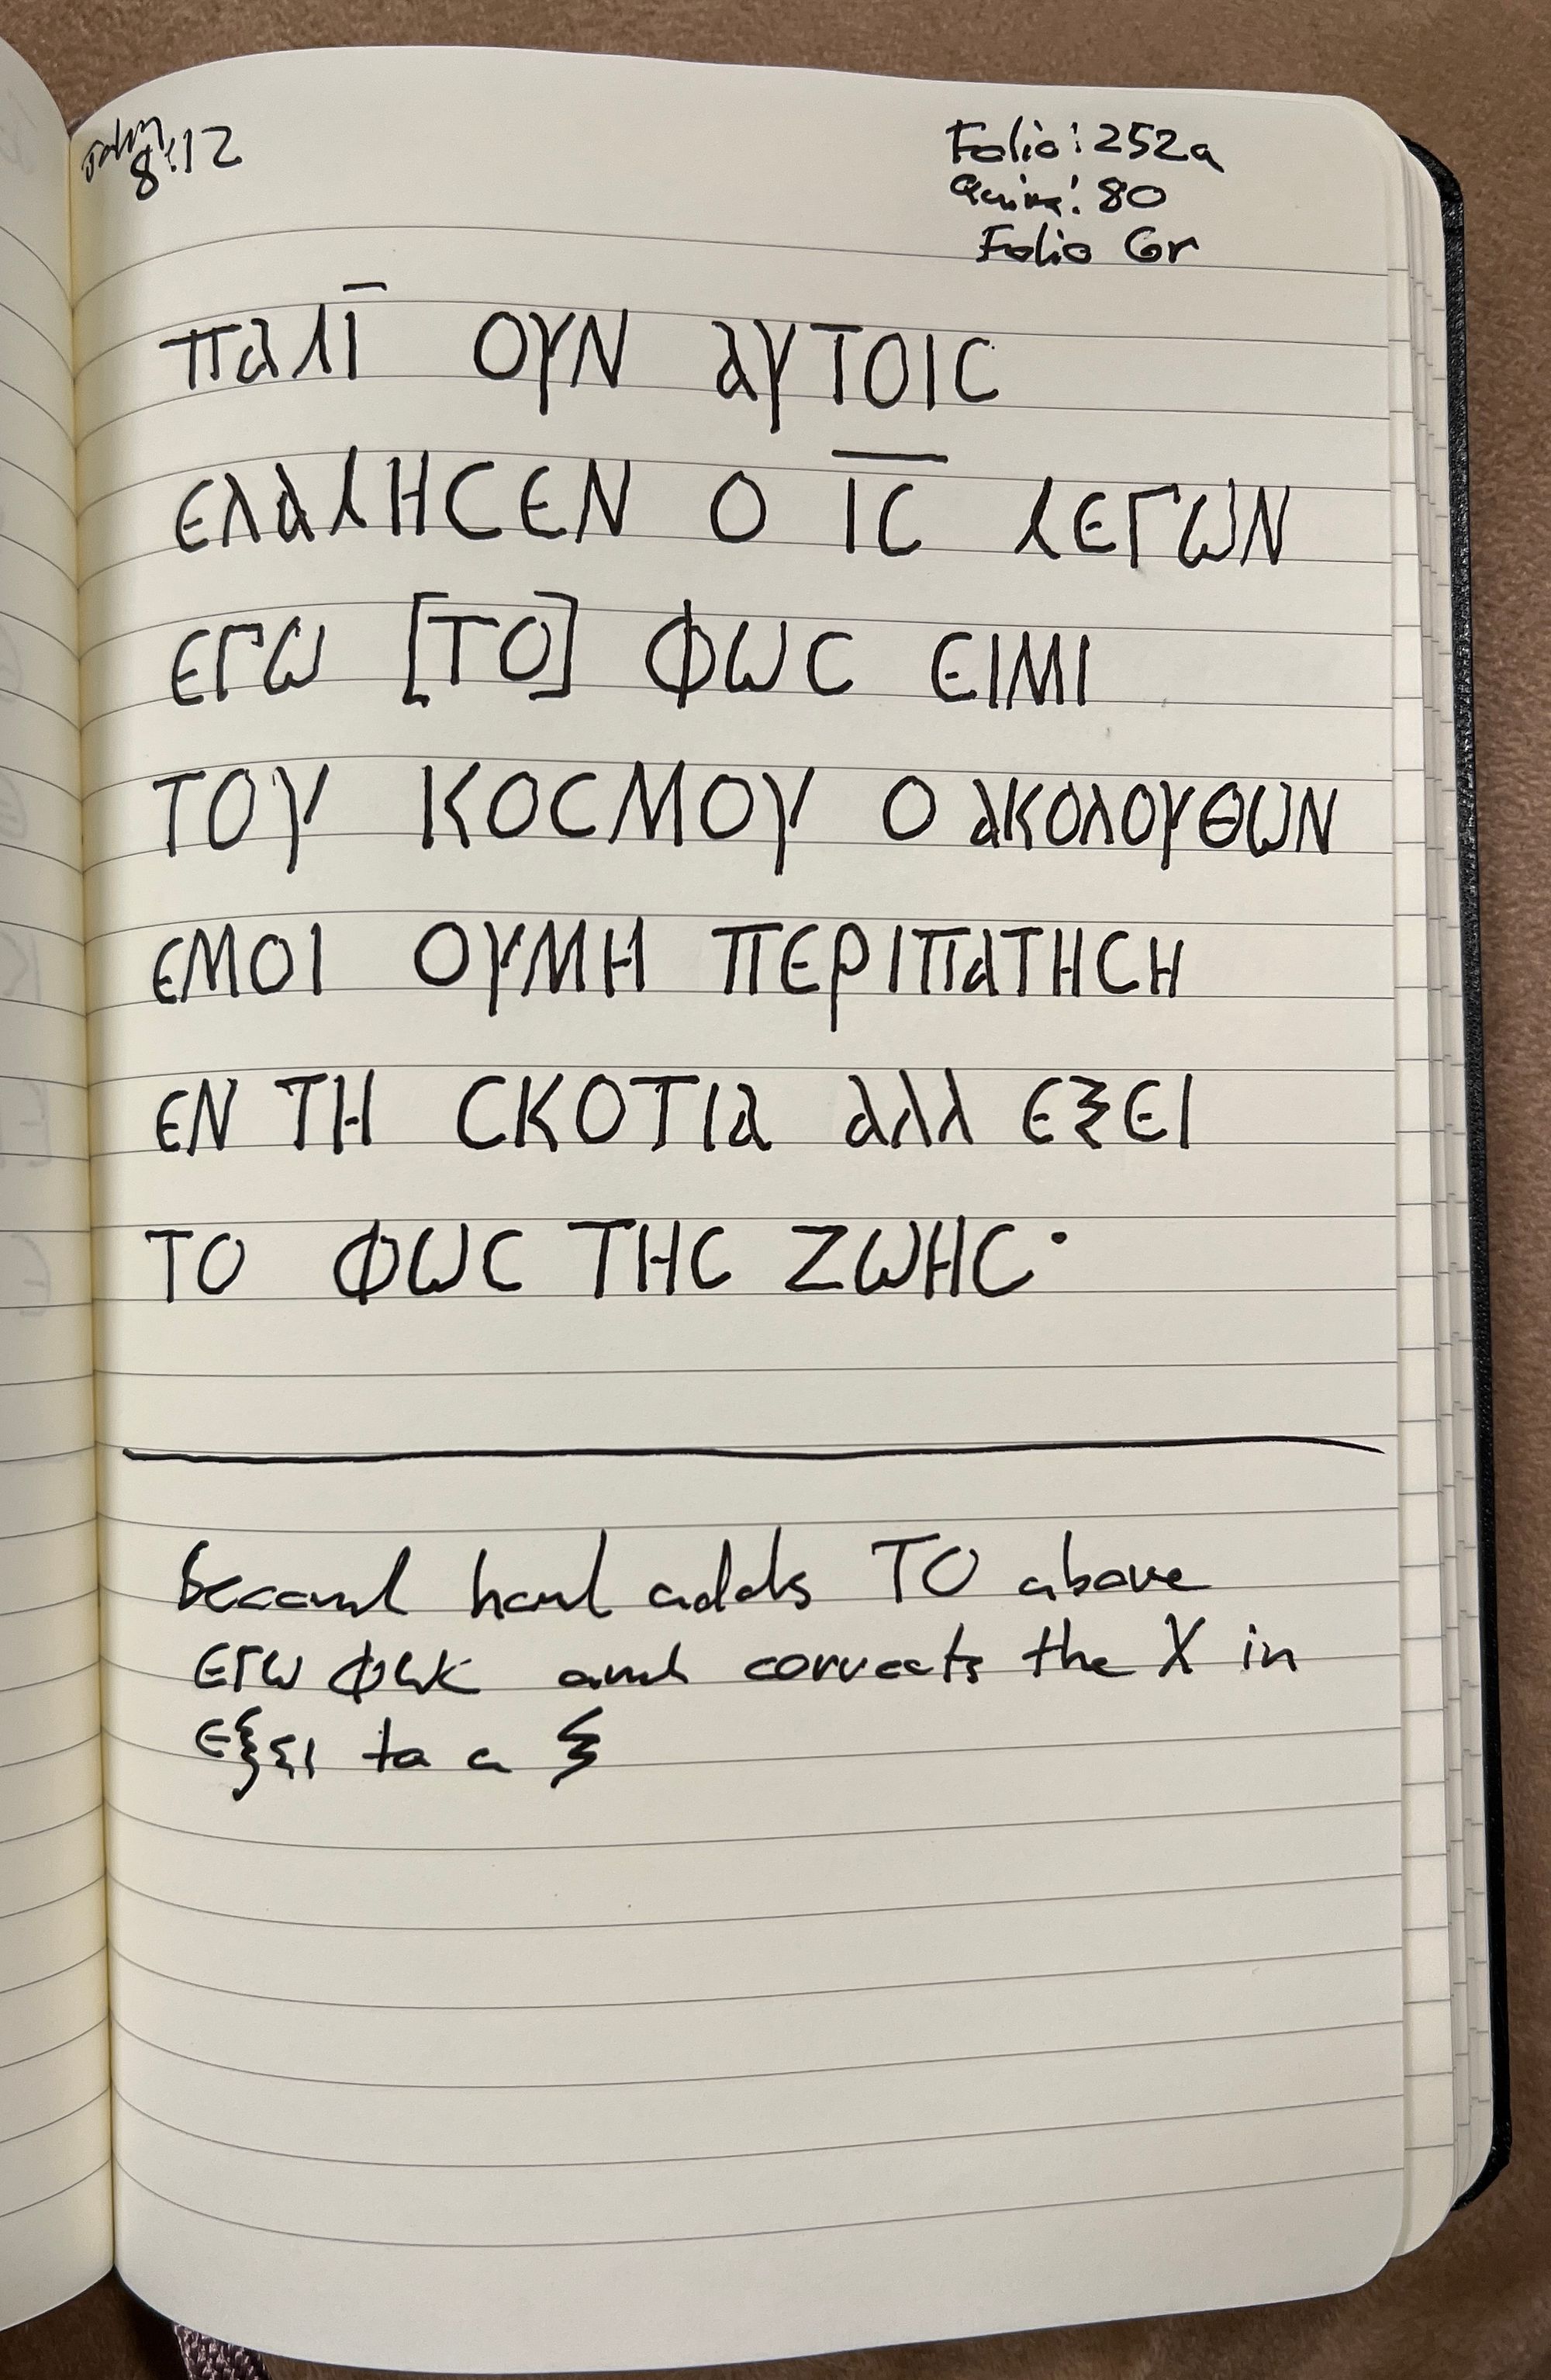 John
8:12
Folio: 252a
Quire: 80
Folio 6r
ΠΑΛΙ̅ ΟΥΝ ΑΥΤΟΙϹ
ΕΛΑΛΗϹΕΝ Ο Ι̅Ϲ̅ ΛΕΓΩΝ
ΕΓΩ [ΤΟ] ΦΩϹ ΕΙΜΙ
ΤΟΥ ΚΟϹΜΟΥ Ο ΑΚΟΛΟΥΘΩΝ
ΕΜΟΙ ΟΥΜΗ ΠΕΡΙΠΑΤΗϹΗ
ΕΝ ΤΗ ϹΚΟΤΙΑ ΑΛΛ ΕΞΕΙ
ΤΟ ΦΩϹ ΤΗϹ ΖΩΗϹ·
Second hand adds ΤΟ above
ΕΓΩ ΦΩΚ and corrects the X in
ΕΞΕΙ to a Ξ